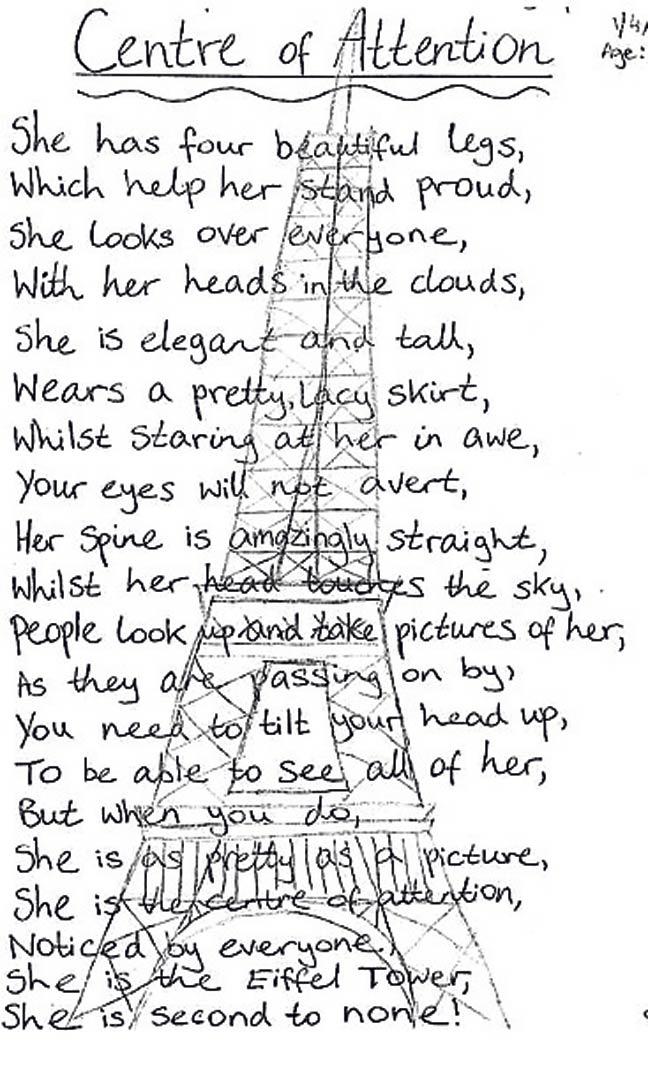 Centre of Attention
1/4/
Age:
She has four beautiful legs,
Which help her stand proud,
She looks over everyone,
With her heads in the clouds,
She is elegant and tall,
Wears a pretty, lacy skirt,
Whilst staring at her in awe,
Your eyes will not avert,
Her spine is amazingly straight,
Whilst her head touches the sky,
People look up and take pictures of her,
As they are passing on by,
You need to tilt your head up,
To be able to see all of her,
But when you do,
She is as pretty as a picture,
She is the centre of attention,
Noticed by everyone,
She is the Eiffel Tower,
She is second to none!